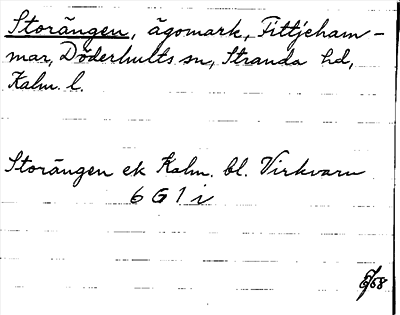 Storängen, ägomark, Fittjeham-
mar, Döderhults sn, Stranda hd,
Kalm. l.
Storängen ek Kalm. bl. Virkvarn
6 G 1 i
/68